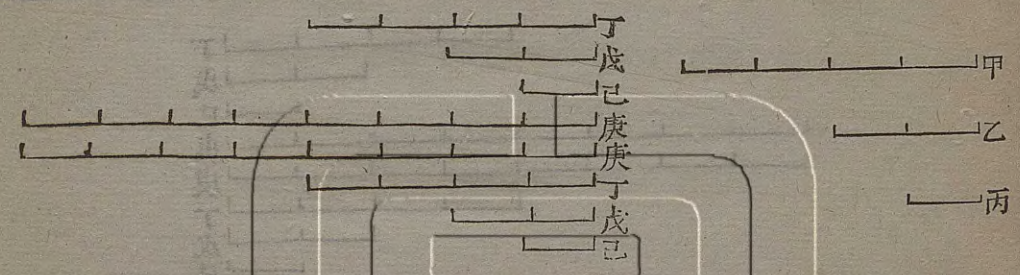 甲
乙
丙
丁
戊
己
庚
庚
丁
戊
己